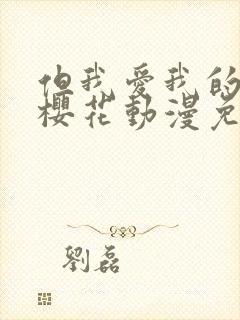 但我愛我的
櫻花動漫免
劉磊